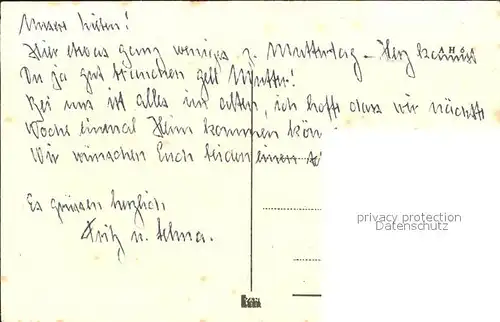 Unsere lieben!
Hier etwas ganz weniges z. Muttertag - Herz kannst
A H 6
Du ja gut brauchen gell Mutter!
Bei uns ist alles im alten, ich hoffe dass wir nächste
Woche einmal Heim kommen kön
Wir wünschen Euch beiden einen
Es grüssen herzlich
Fritz u. Selma.
privacy protection
Datenschutz